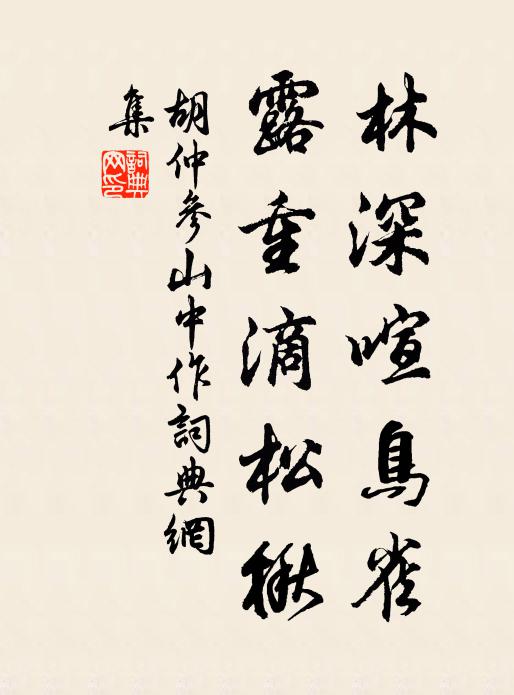 林深喧鳥雀
露重滴松楸
胡仲參山中作詞典網
集
詞典網印